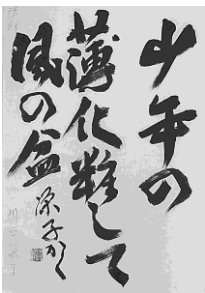 少年の
薄化粧して
風の盆
深子かく